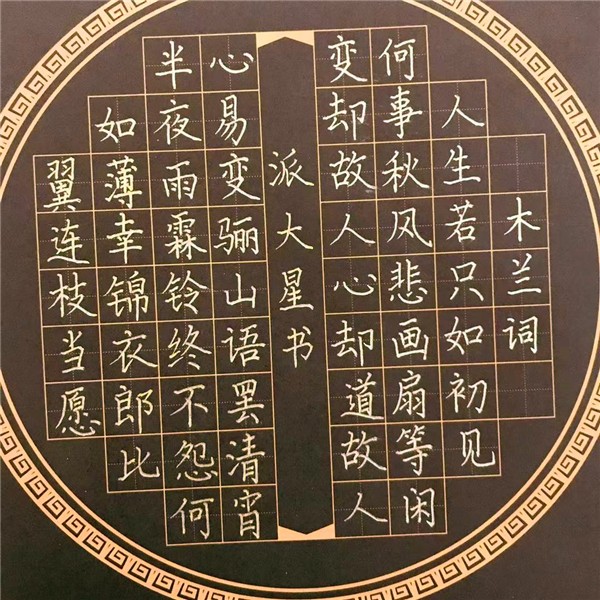 木兰词
人生若只如初见
何事秋风悲画扇等闲
变却故人心却道故人
派大星书
心易变骊山语罢清宵
半夜雨霖铃终不怨何
如薄幸锦衣郎比
翼连枝当愿